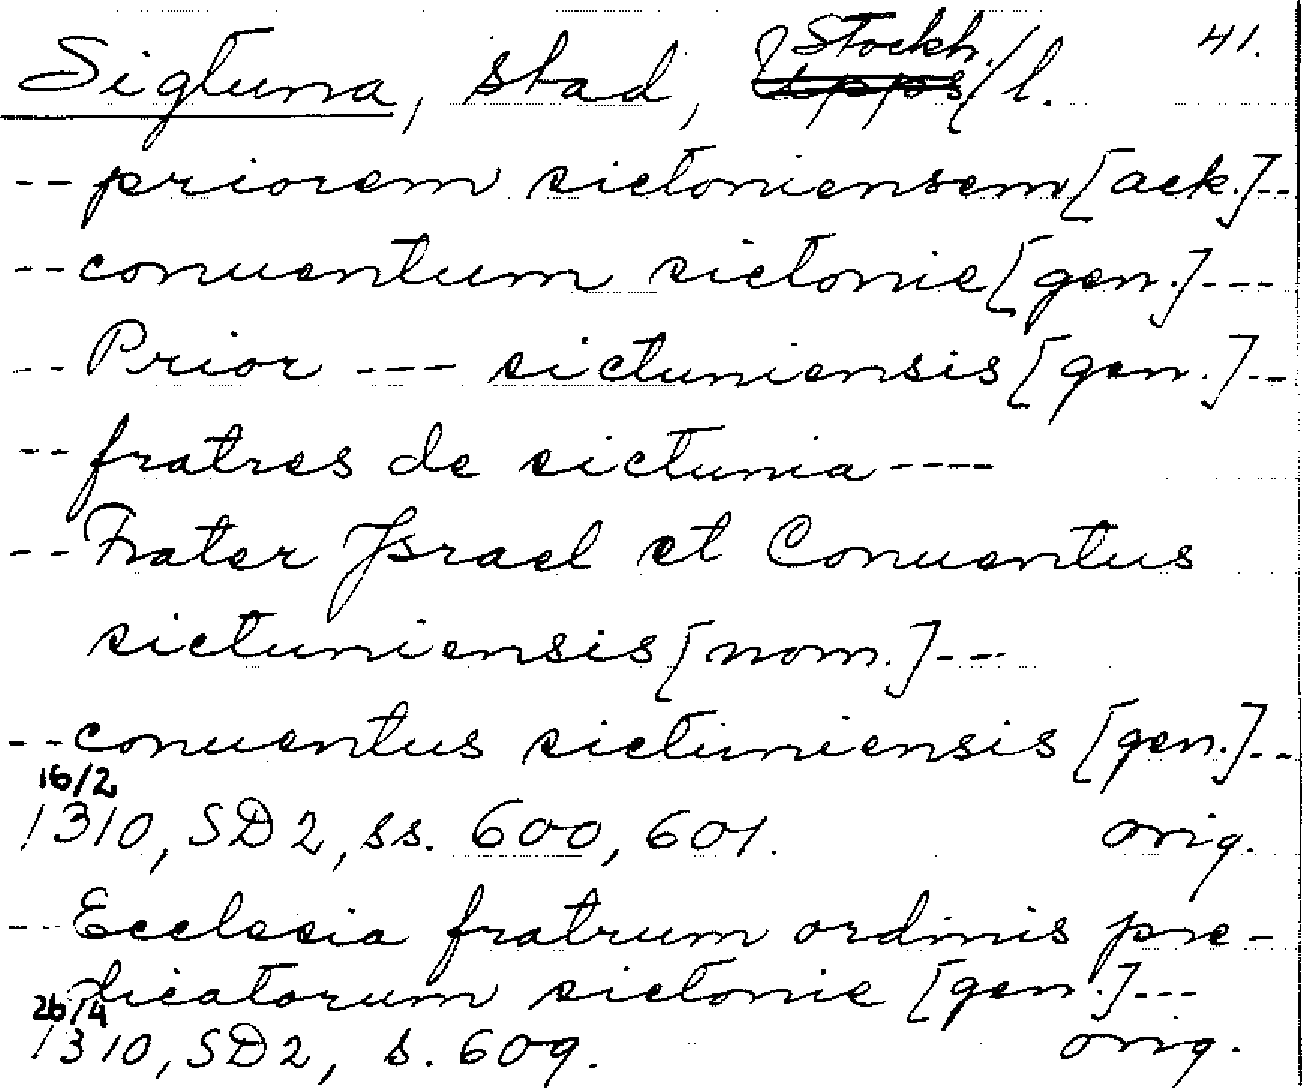 Sigtuna, stad, Stockh./l. 41.
-- priorem sictoniensem [ack.]--
-- conuentum sictonie [gen.]---
-- Prior --- sictuniensis [gen.]--
-- fratres de sictunia ----
-- Frater Jsrael et Conuentus
sictuniensis [nom.]---
-- conuentus sictuniensis [gen.]--
16/2
1310, SD2, ss. 600, 601. orig.
-- Ecclesia fratrum ordinis pre-
dicatorum sictonie [gen.]---
26/4
1310, SD2, s. 609. orig.